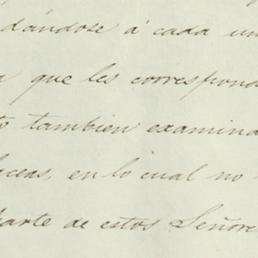 dándose á cada un
que les correspond
tambien examina
en lo cual no
parte de estos Señore